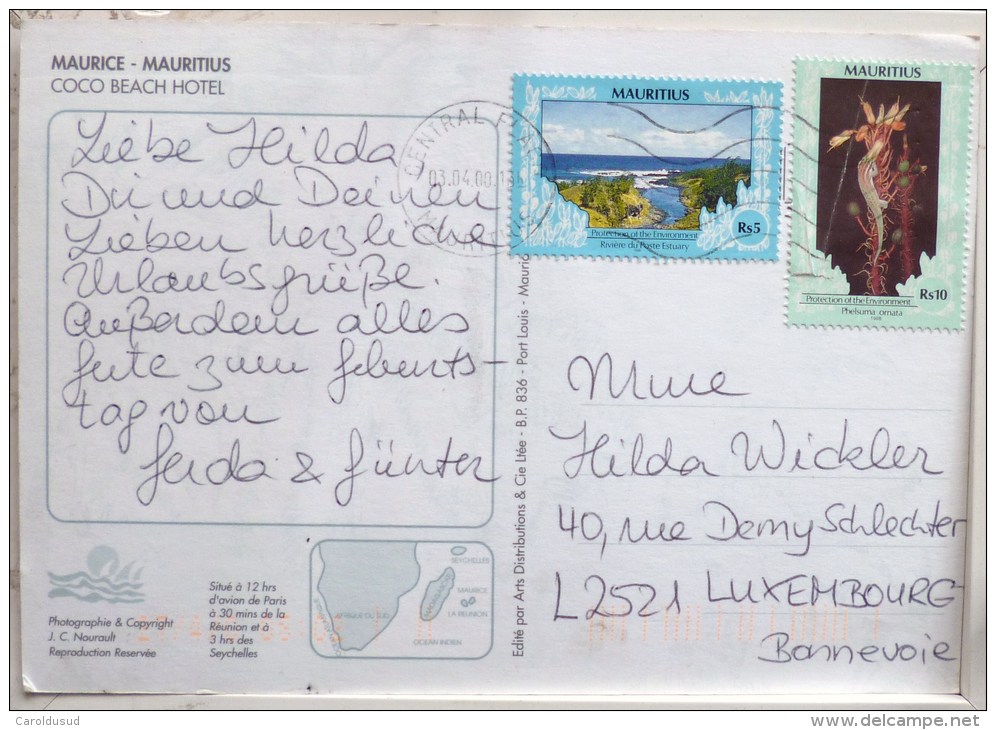 MAURICE - MAURITIUS
COCO BEACH HOTEL
Liebe Hilda
Dir und Deinen
Lieben herzliche
Urlaubsgrüße.
Außerdem alles
Gute zum Geburts-
tag von
Gerda & Günter
Photographie & Copyright
J. C. Nourault
Reproduction Reservée
Situé à 12 hrs
d'avion de Paris
à 30 mins de la
Réunion et à
3 hrs des
Seychelles
AFRIQUE DU SUD
MADAGASCAR
SEYCHELLES
MAURICE
LA REUNION
OCEAN INDIEN
Edité par Arts Distributions & Cie Ltée - B.P. 836 - Port Louis - Maurice
CENTRAL
03.04.00.13
MAURITIUS
Protection of the Environment
Rivière du Poste Estuary
Rs5
MAURITIUS
Protection of the Environment
Phelsuma ornata
1989
Rs10
Mme
Hilda Wickler
40, rue Demy Schlechter
L2521 LUXEMBOURG-
Bonnevoie
Caroldusud